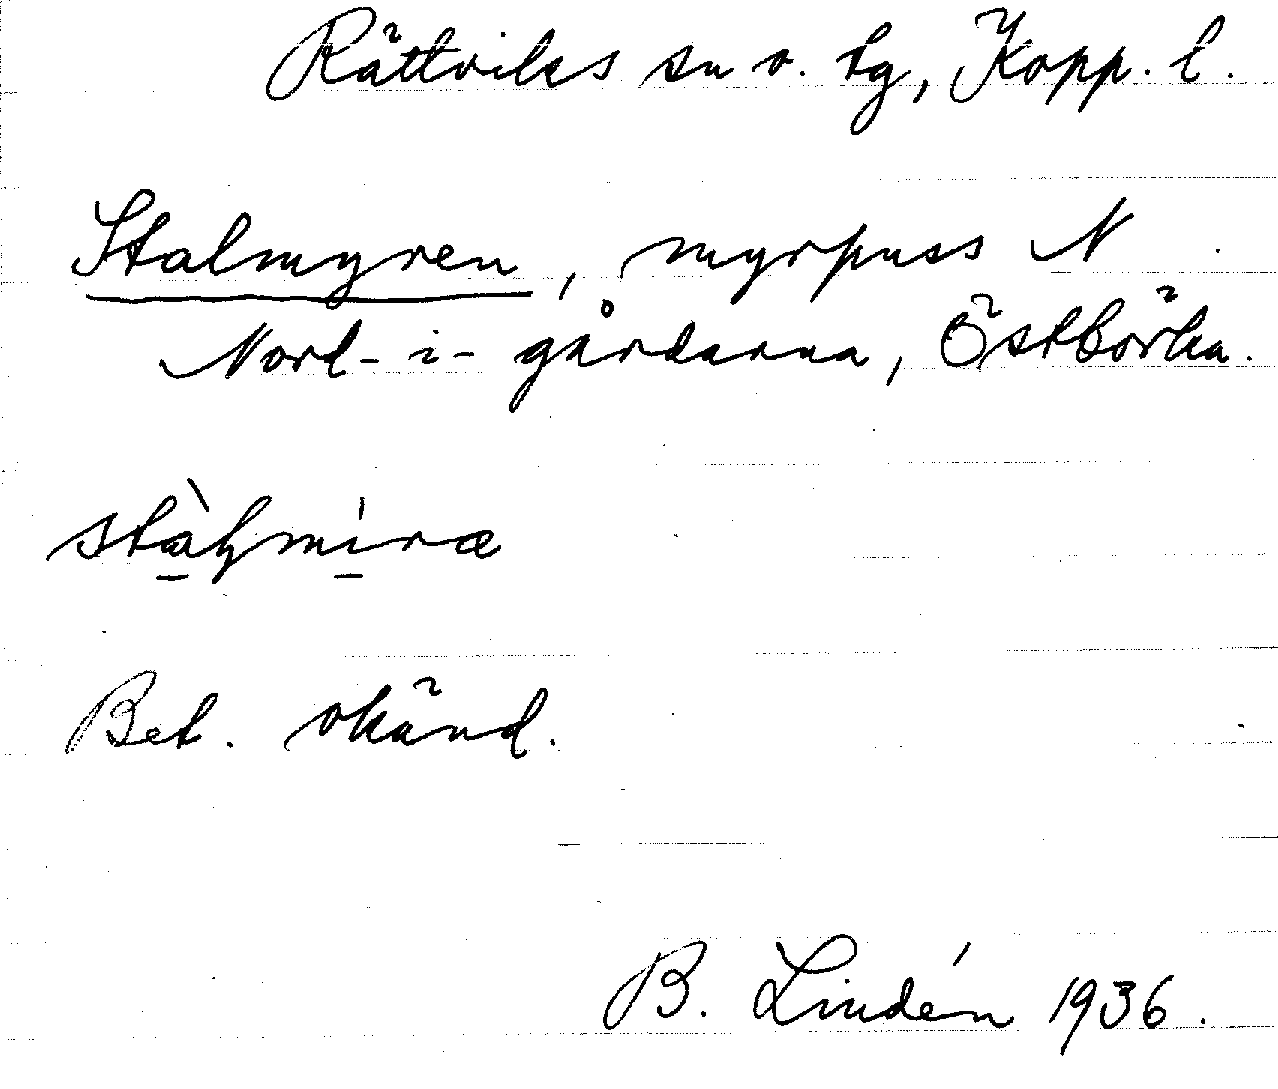 Rättviks sn o. tg, Kopp. l.
Stalmyren, myrpuss N
Nord-i-gårdarna, Östbörka.
stàl̥míra
Bet. okänd.
B. Lindén 1936.